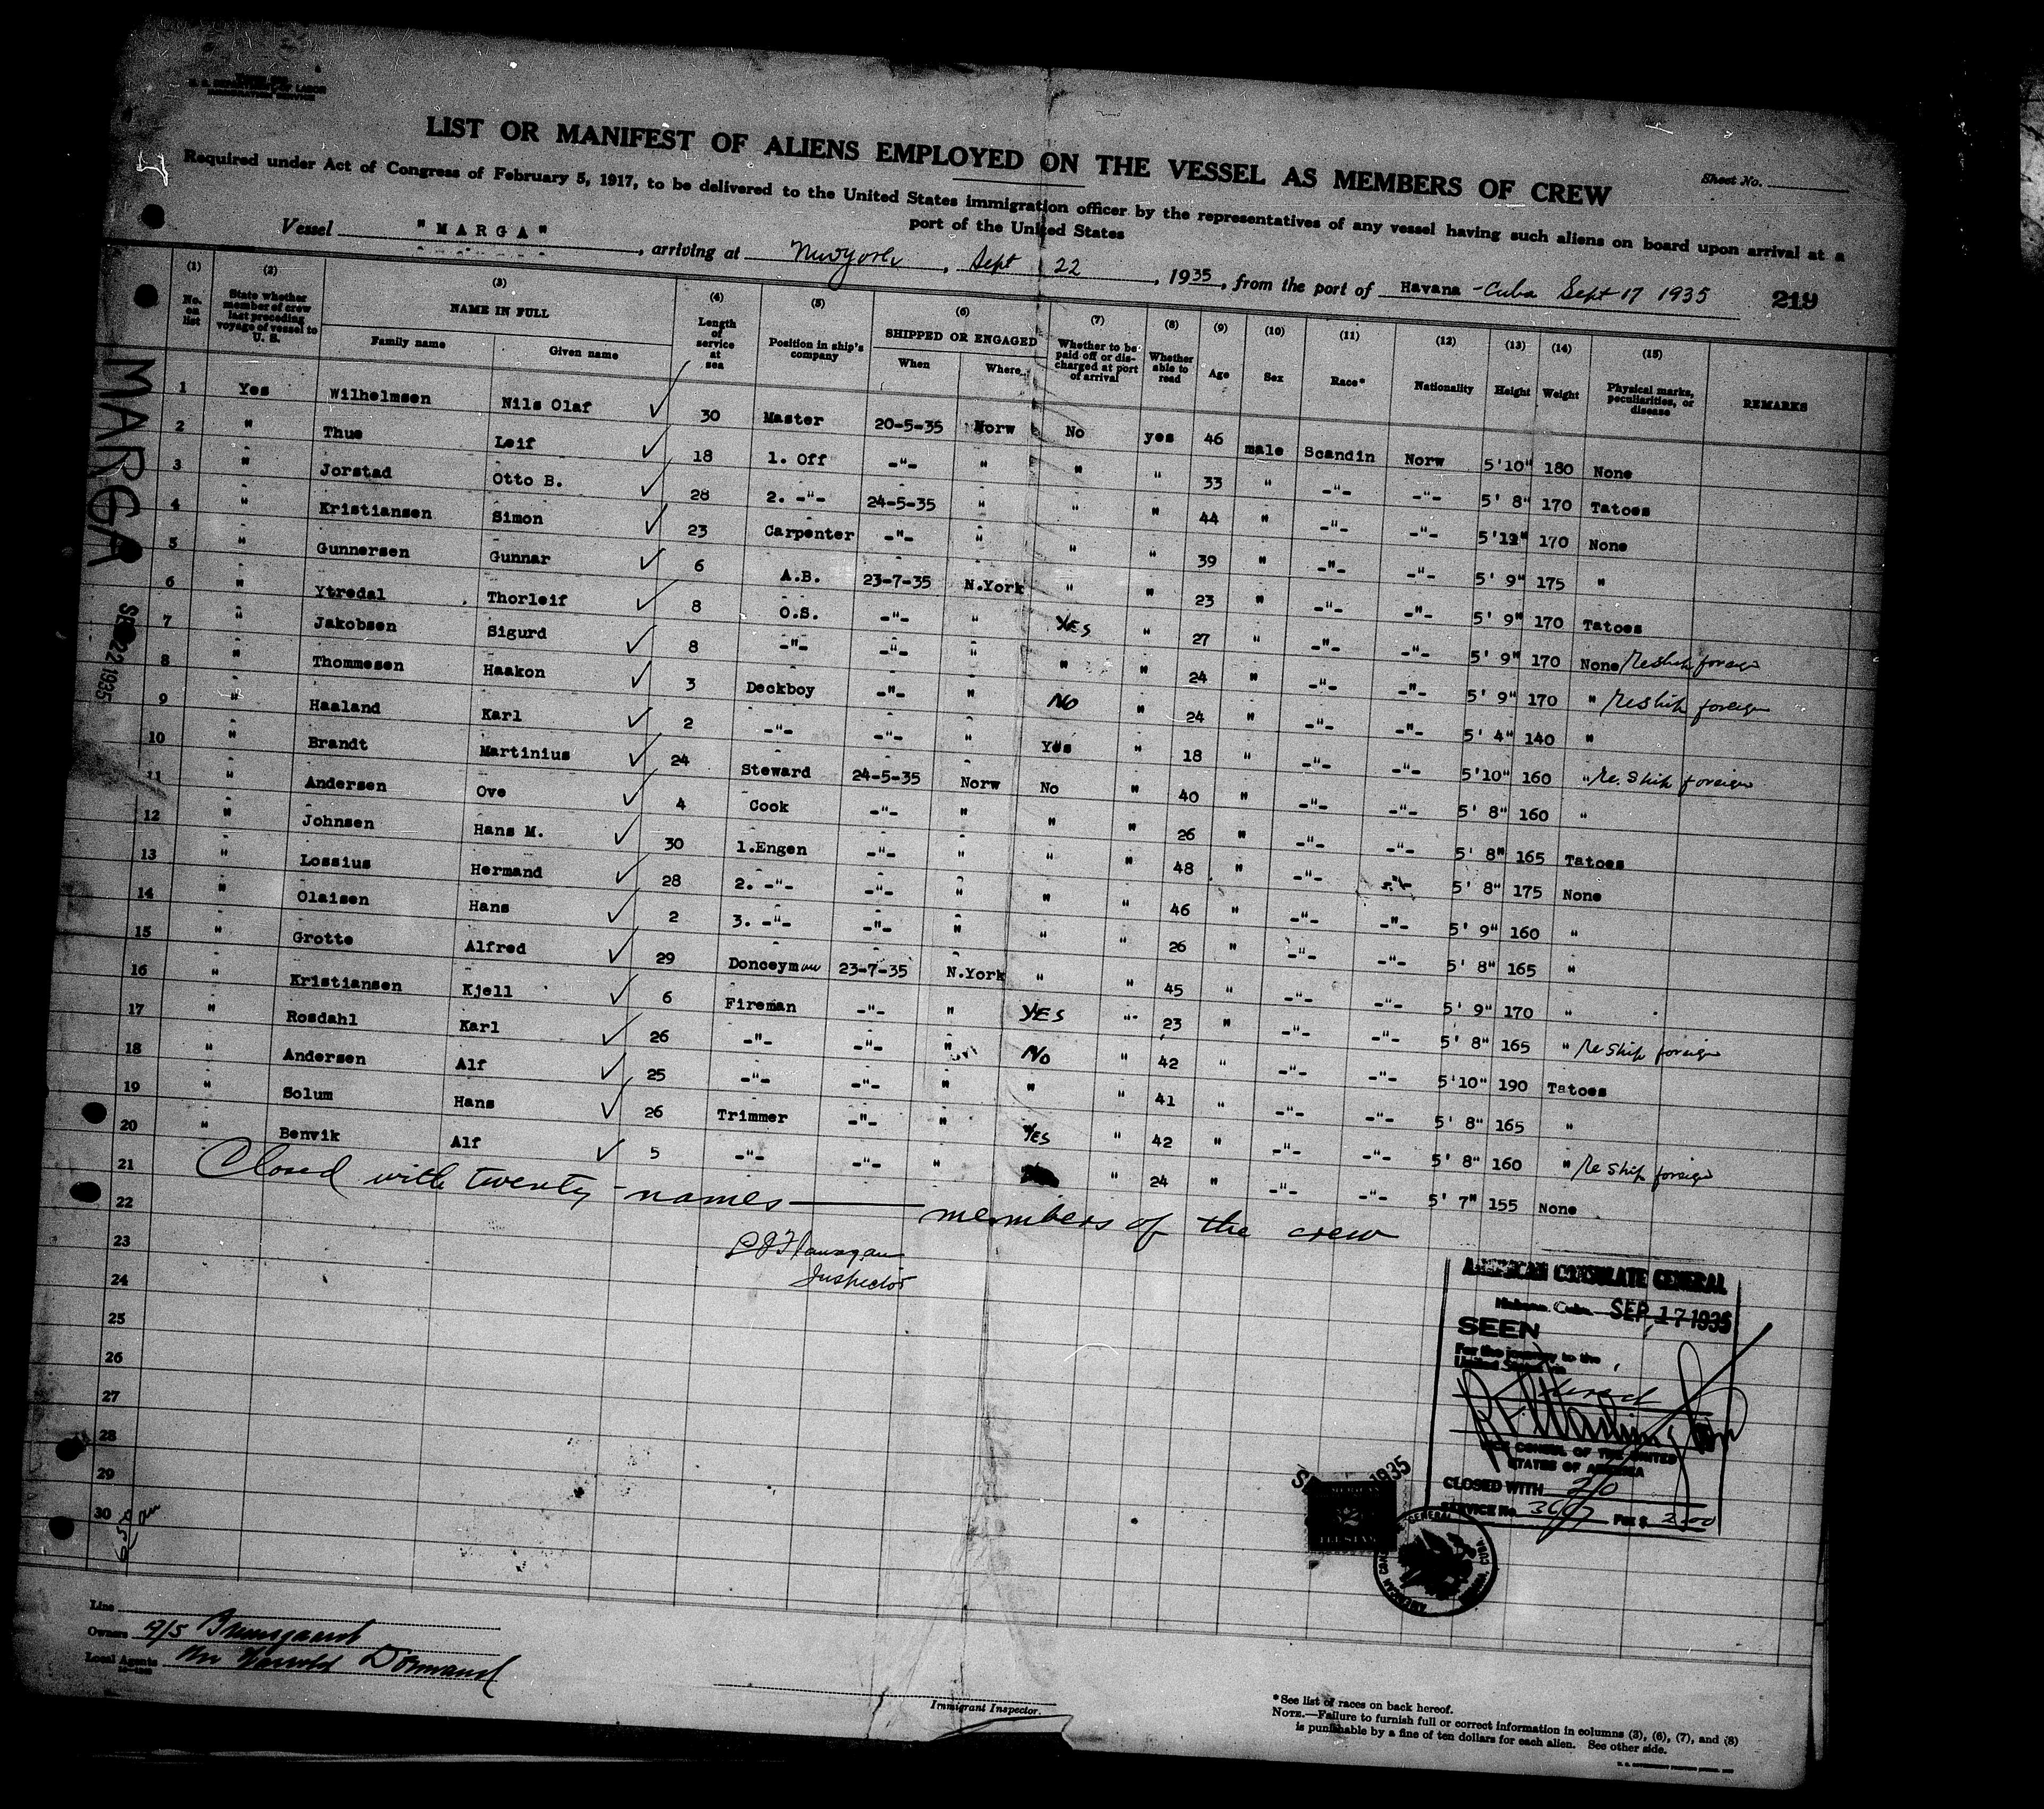 U. S. DEPARTMENT OF LABOR
IMMIGRATION SERVICE
LIST OR MANIFEST OF ALIENS EMPLOYED ON THE VESSEL AS MEMBERS OF CREW
Sheet No.
Required under Act of Congress of February 5, 1917, to be delivered to the United States immigration officer by the representatives of any vessel having such aliens on board upon arrival at a
port of the United States
Vessel "MARGA", arriving at New York, Sept 22, 1935, from the port of Havana - Cuba Sept 17 1935 219
(1) (2) (3) (4) (5) (6) (7) (8) (9) (10) (11) (12) (13) (14) (15)
No. on list State whether member of crew last preceding voyage of vessel to U. S. NAME IN FULL Family name Given name Length of service at sea Position in ship's company SHIPPED OR ENGAGED When Where Whether to be paid off or discharged at port of arrival Whether able to read Age Sex Race* Nationality Height Weight Physical marks, peculiarities, or disease REMARKS
1 Yes Wilhelmsen Nils Olaf ✓ 30 Master 20-5-35 Norw No yes 46 male Scandin Norw 5'10" 180 None
2 " Thue Leif ✓ 18 1. Off -"- " " " 33 " -"- -"- 5' 8" 170 Tatoes
3 " Jorstad Otto B. ✓ 28 2. -"- 24-5-35 " " " 44 " -"- -"- 5'12" 170 None
4 " Kristiansen Simon ✓ 23 Carpenter -"- " " " 39 " -"- -"- 5' 9" 175 "
5 " Gunnersen Gunnar ✓ 6 A.B. 23-7-35 N.York " " 23 " -"- -"- 5' 9" 170 Tatoes
6 " Ytredal Thorleif ✓ 8 O.S. -"- " YES " 27 " -"- -"- 5' 9" 170 None Reship foreign
7 " Jakobsen Sigurd ✓ 8 -"- -"- " " " 24 " -"- -"- 5' 9" 170 " Reship foreign
8 " Thommesen Haakon ✓ 3 Deckboy -"- " NO " 24 " -"- -"- 5' 4" 140 "
9 " Haaland Karl ✓ 2 -"- -"- " Yes " 18 " -"- -"- 5'10" 160 " Re. Ship foreign
10 " Brandt Martinius ✓ 24 Steward 24-5-35 Norw No " 40 " -"- -"- 5' 8" 160 "
11 " Andersen Ove ✓ 4 Cook -"- " " " 26 " -"- -"- 5' 8" 165 Tatoes
12 " Johnsen Hans M. ✓ 30 1.Engen -"- " " " 48 " -"- -"- 5' 8" 175 None
13 " Lossius Hermand ✓ 28 2. -"- -"- " " " 46 " -"- -"- 5' 9" 160 "
14 " Olaisen Hans ✓ 2 3. -"- -"- " " " 26 " -"- -"- 5' 8" 165 "
15 " Grotte Alfred ✓ 29 Donceyman 23-7-35 N.York " " 45 " -"- -"- 5' 9" 170 "
16 " Kristiansen Kjell ✓ 6 Fireman -"- " YES " 23 " -"- -"- 5' 8" 165 " Re Ship foreign
17 " Rosdahl Karl ✓ 26 -"- -"- " No " 42 " -"- -"- 5'10" 190 Tatoes
18 " Andersen Alf ✓ 25 -"- -"- " " " 41 " -"- -"- 5' 8" 165 "
19 " Solum Hans ✓ 26 Trimmer -"- " YES " 42 " -"- -"- 5' 8" 160 " Re Ship foreign
20 " Benvik Alf ✓ 5 -"- -"- " " 24 " -"- -"- 5' 7" 155 None
21 Closed with twenty names — members of the crew
22
23 Flanagan
24 Inspector
25
26
27
28
29
30
MARGA
SEP 22 1935
AMERICAN CONSULATE GENERAL
Habana, Cuba. SEP 17 1935
SEEN
For the journey to the
United States via
direct
VICE CONSUL OF THE UNITED
STATES OF AMERICA
CLOSED WITH 20
SERVICE No. 3607 Fee $ 2.00
1935
Line
Owners A/S
Local Agents Harold Dormand
Immigrant Inspector.
*See list of races on back hereof.
NOTE.—Failure to furnish full or correct information in columns (3), (6), (7), and (8)
is punishable by a fine of ten dollars for each alien. See other side.